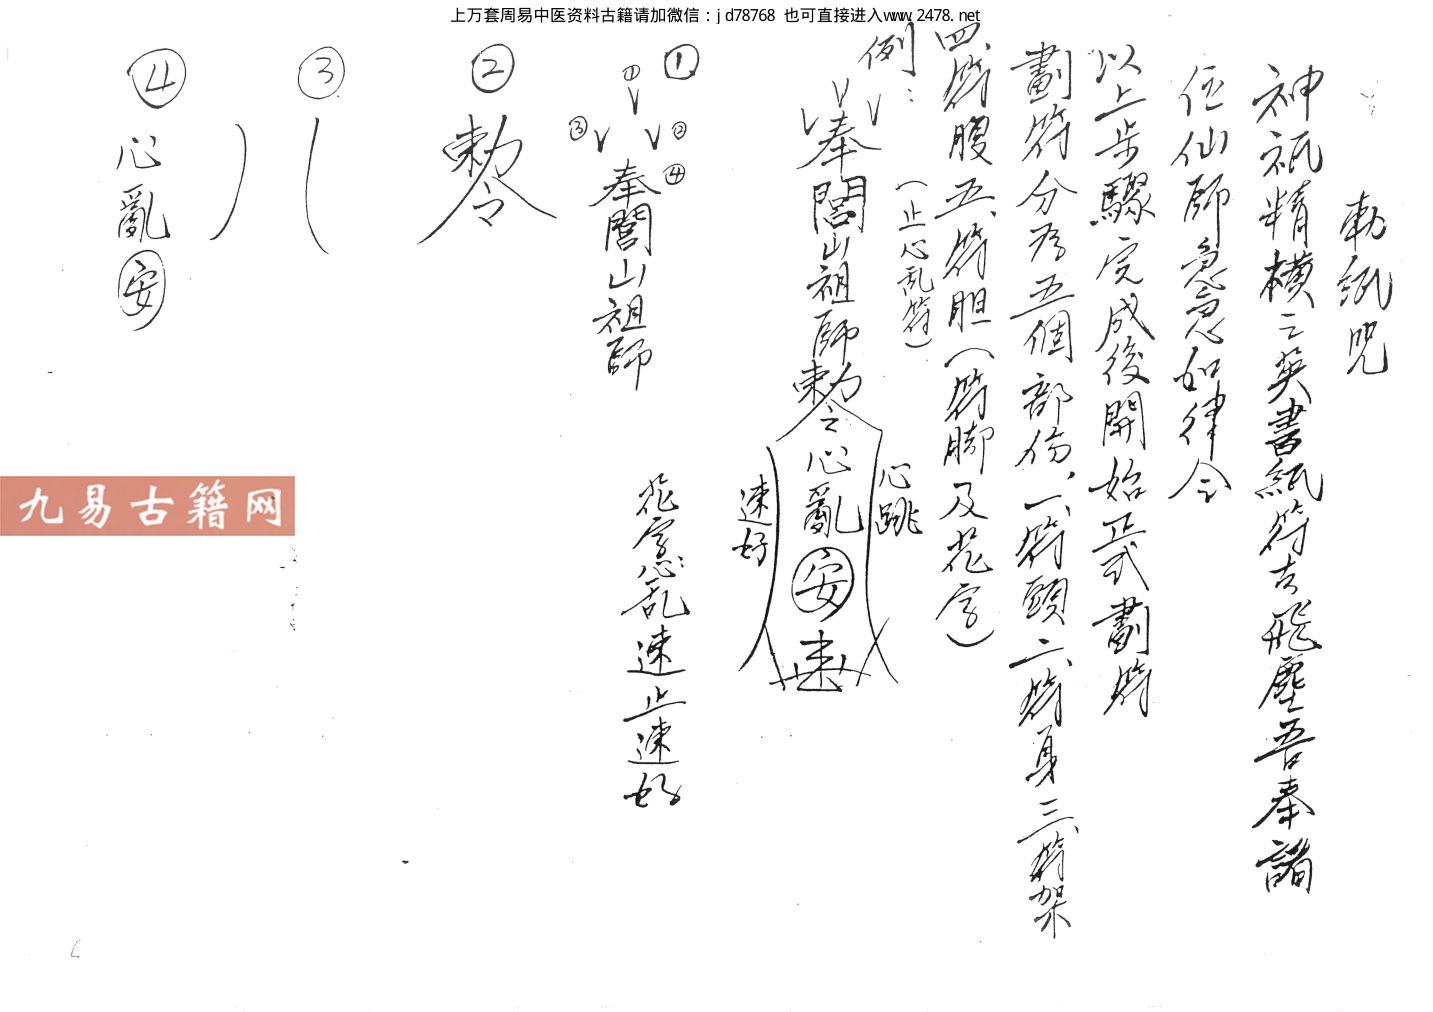 上万套周易中医资料古籍请加微信：jd78768 也可直接进入www.2478.net
勅紙咒
神祇精横之英書紙符古飛塵吾奉諸
位仙師急急如律令
以上步驟完成後開始正式劃符
劃符分為五個部份，一、符頭二、符身三、符架
四、符腹五、符胆（符脚及花字）
（止心乱符）
例：
奉閭山祖師勅令心亂安速
心跳
速好
① ① ② ③ ④ 奉閭山祖師
花字心乱速止速好
② 勅令
③
④ 心亂安
九易古籍网
6